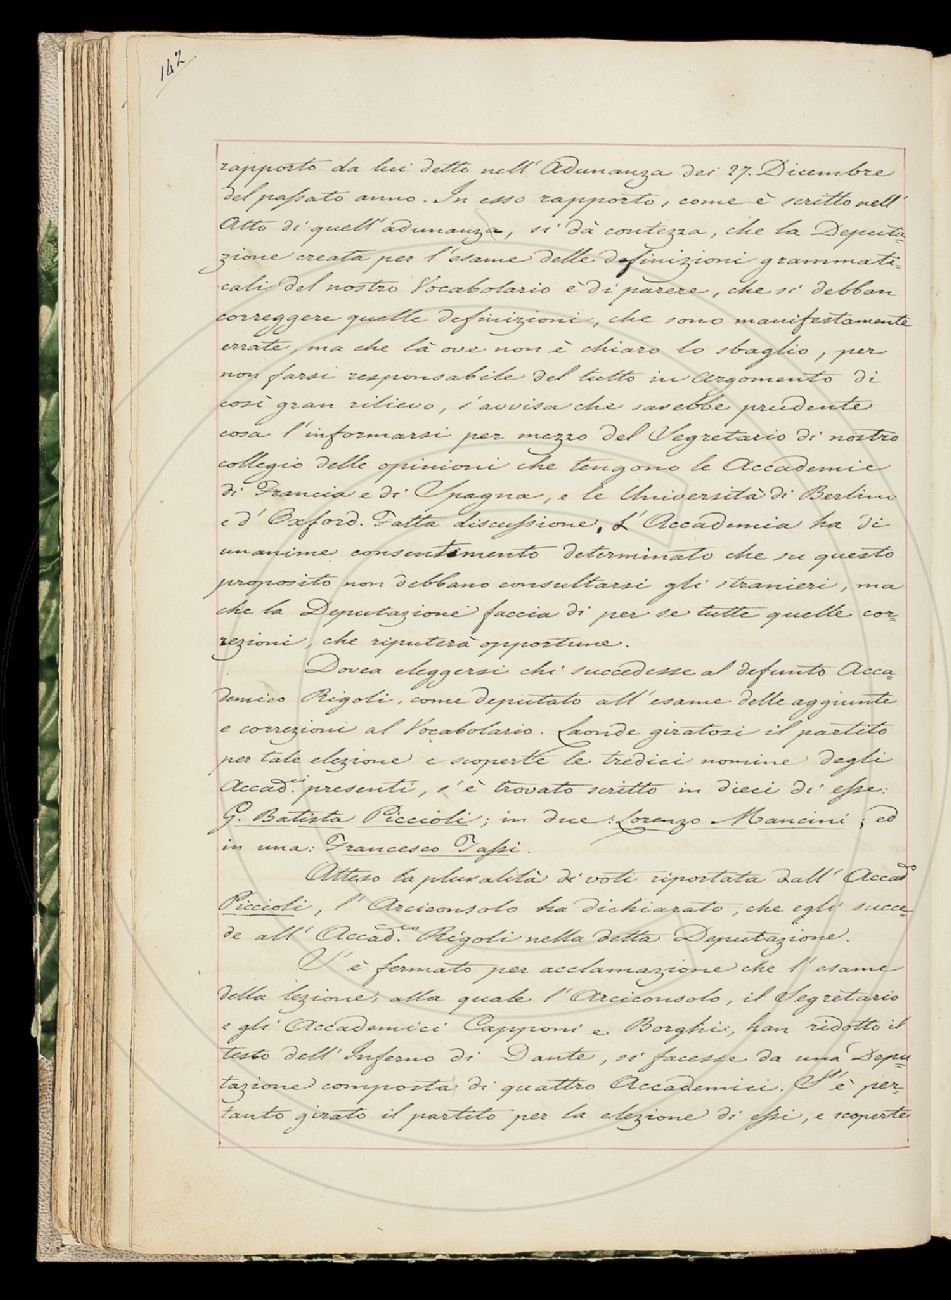 142
rapporto da lui detto nell' Adunanza dei 27. Dicembre
del passato anno. In esso rapporto, come è scritto nell'
Atto di quell' adunanza, si dà contezza, che la Deputa=
zione creata per l'esame delle definizioni grammati=
cali del nostro Vocabolario è di parere, che si debban
correggere quelle definizioni, che sono manifestamente
errate, ma che là ove non è chiaro lo sbaglio, per
non farsi responsabile del tutto in argomento di
così gran rilievo, s'avvisa che sarebbe prudente
cosa l'informarsi per mezzo del Segretario di nostro
collegio delle opinioni che tengono le Accademie
di Francia e di Spagna, e le Università di Berlino
e d' Oxford. Fatta discussione, L' Accademia ha di
unanime consentimento determinato che su questo
proposito non debbano consultarsi gli stranieri, ma
che la Deputazione faccia di per se tutte quelle cor=
rezioni, che riputerà opportune.
Dovea eleggersi chi succedesse al defunto Acca=
demico Rigoli, come deputato all' esame delle aggiunte
e correzioni al Vocabolario. Laonde giratosi il partito
per tale elezione e scoperte le tredici nomine degli
Accad.ci presenti, s'è trovato scritto in dieci di esse:
G. Batista Piccioli; in due: Lorenzo Mancini; ed
in una: Francesco Tassi.
Atteso la pluralità di voti riportata dall' Accad.o
Piccioli, l' Arciconsolo ha dichiarato, che egli succe=
de all' Accad.co Rigoli nella detta Deputazione.
S' è fermato per acclamazione che l' esame
della lezione, alla quale l' Arciconsolo, il Segretario
e gli Accademici Capponi e Borghi, han ridotto il
testo dell' Inferno di Dante, si facesse da una Depu=
tazione composta di quattro Accademici. S' è per=
tanto girato il partito per la elezione di essi, e scoperte